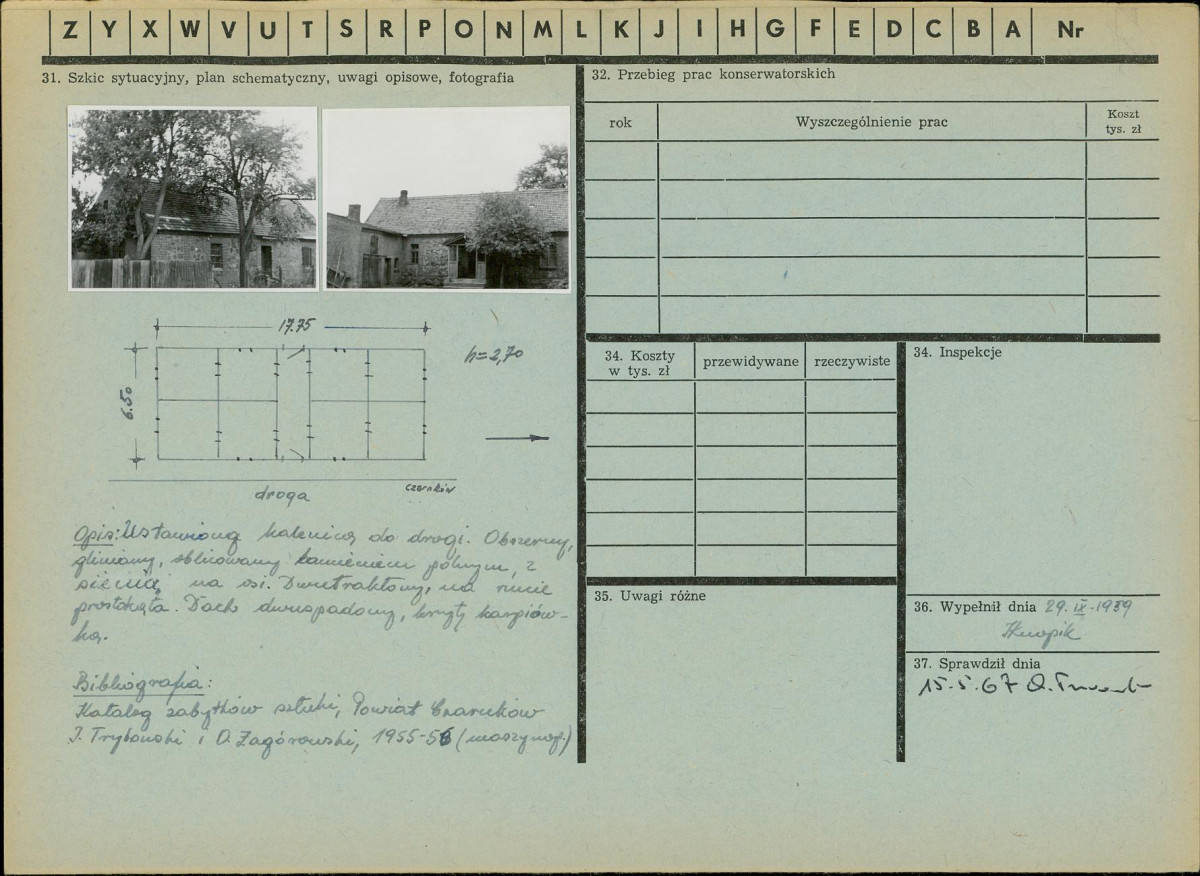 Z Y X W V U T S R P O N M L K J I H G F E D C B A Nr
31. Szkic sytuacyjny, plan schematyczny, uwagi opisowe, fotografia
17.75
h=2,70
6.50
droga
czarnków
Opis: Ustawiony kalenicą do drogi. Obszerny,
gliniany, oblicowany kamieniem polnym, z
sienią na osi. Dwutraktowy, na rzucie
prostokąta. Dach dwuspadowy, kryty karpiów-
ką.
Bibliografia:
Katalog zabytków sztuki, Powiat Czarnków
J. Trybowski i O. Zagórowski, 1955-56 (maszynop.)
32. Przebieg prac konserwatorskich
rok
Wyszczególnienie prac
Koszt
tys. zł
34. Koszty
w tys. zł
przewidywane
rzeczywiste
34. Inspekcje
35. Uwagi różne
36. Wypełnił dnia 29. IX. 1959
37. Sprawdził dnia
15.5.67